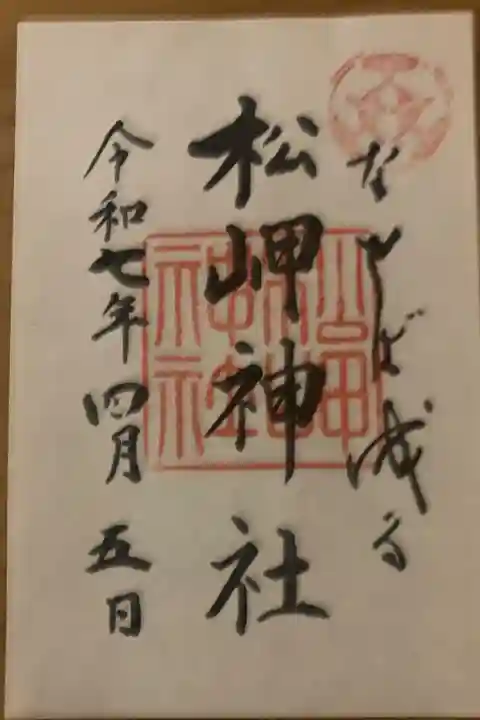 なせば成る
松岬神社
令和七年四月五日